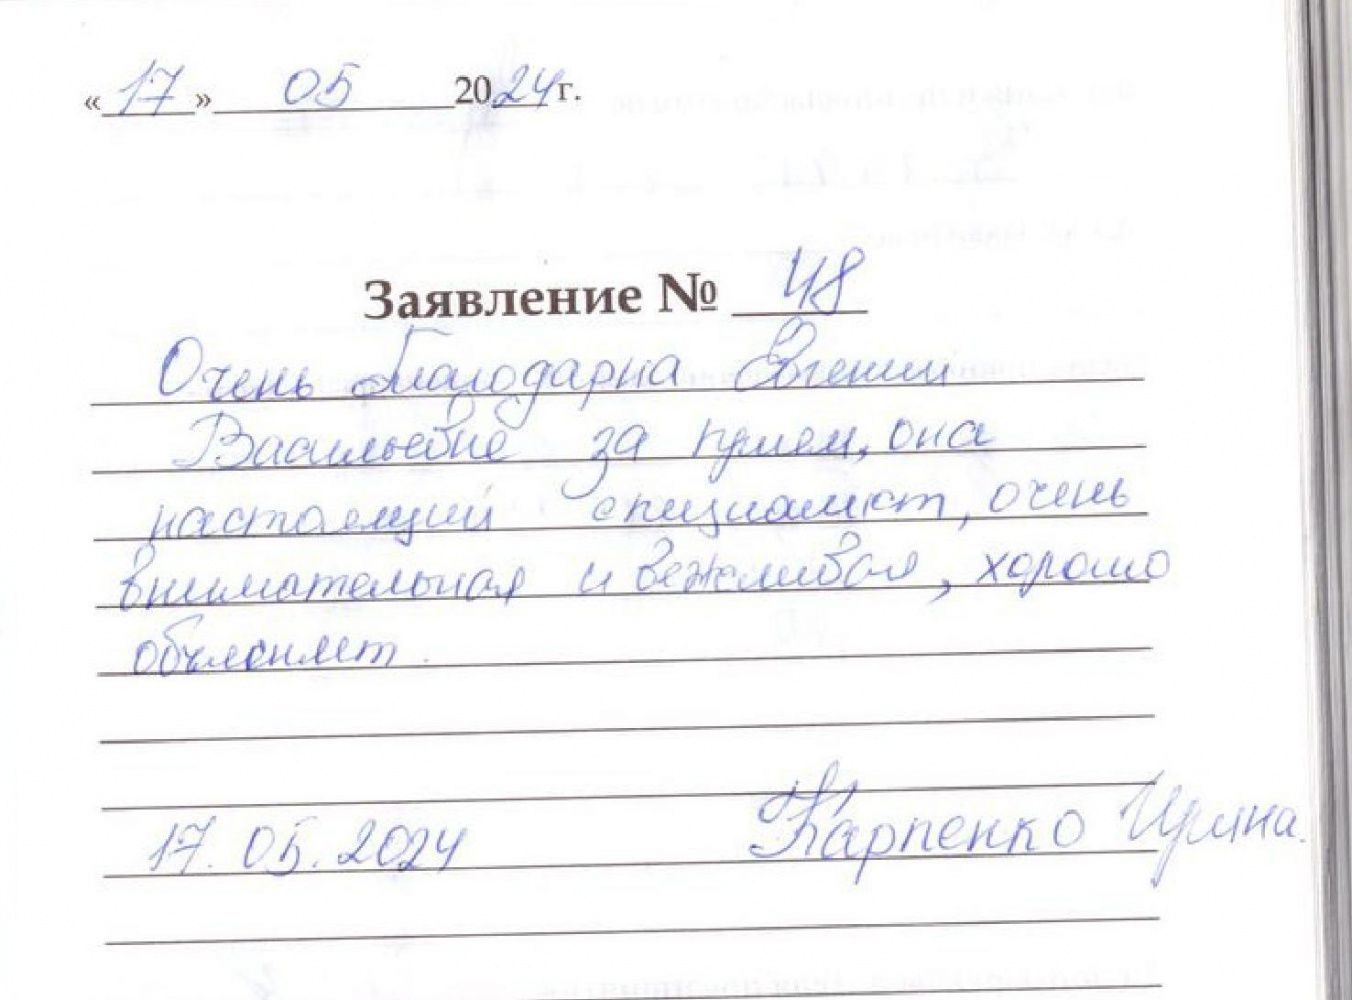 «17» 05 2024 г.
Заявление № 48
Очень благодарна Евгении
Васильевне за прием, она
настоящий специалист, очень
внимательная и вежливая, хорошо
объясняет.
17.05.2024 Карпенко Ирина.